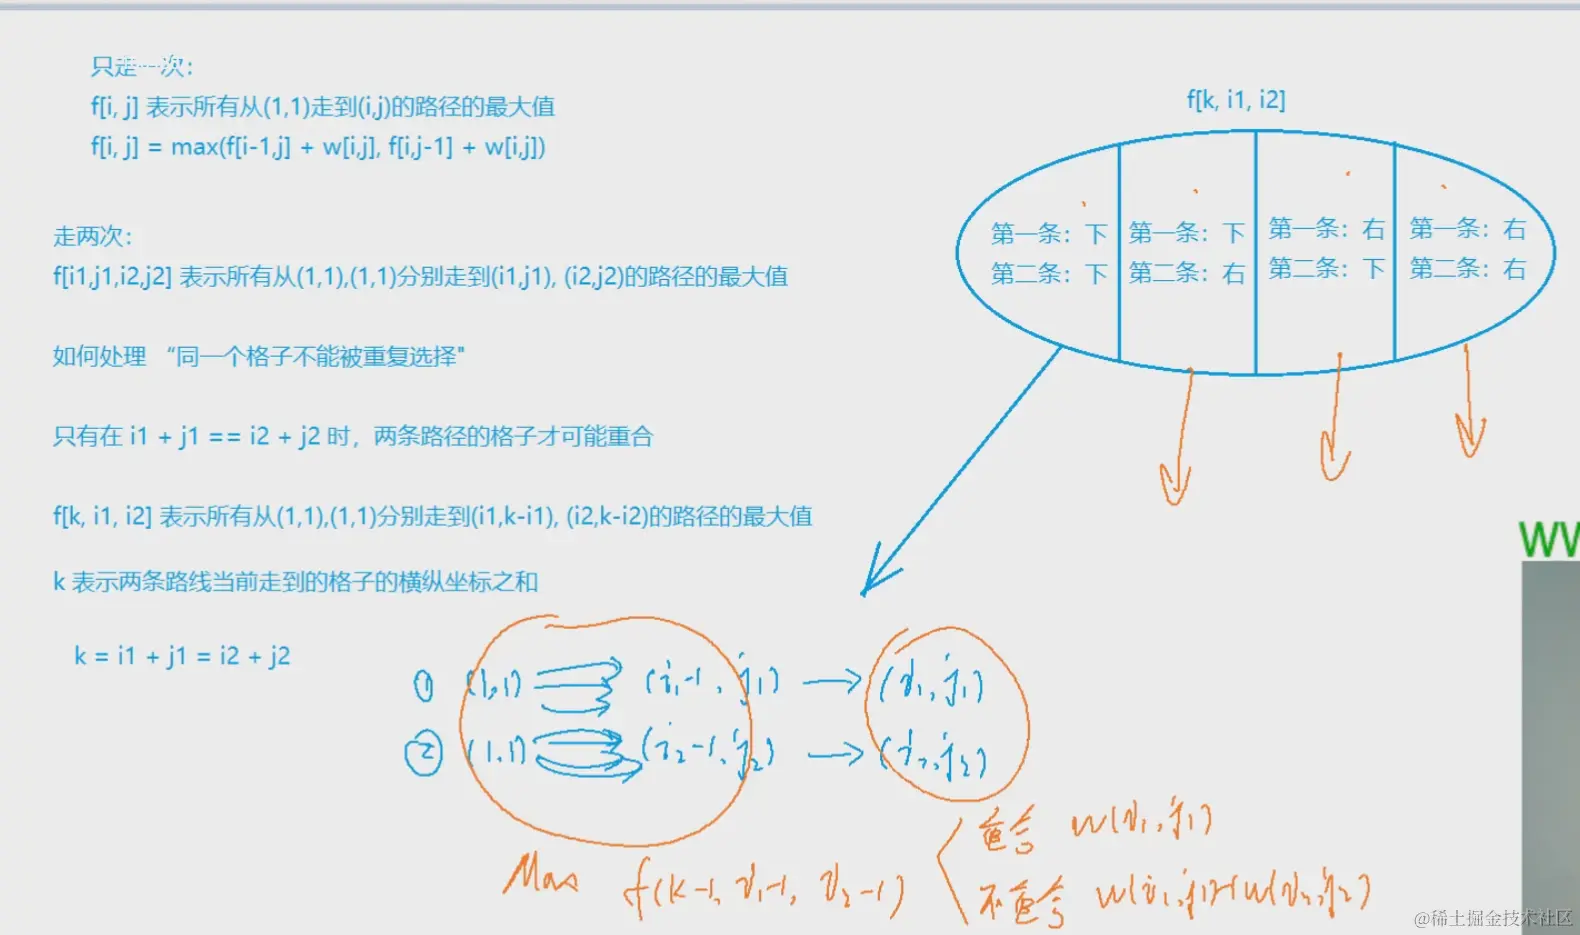 只走一次：
f[i, j] 表示所有从(1,1)走到(i,j)的路径的最大值
f[i, j] = max(f[i-1,j] + w[i,j], f[i,j-1] + w[i,j])
走两次：
f[i1,j1,i2,j2] 表示所有从(1,1),(1,1)分别走到(i1,j1), (i2,j2)的路径的最大值
如何处理 “同一个格子不能被重复选择"
只有在 i1 + j1 == i2 + j2 时，两条路径的格子才可能重合
f[k, i1, i2] 表示所有从(1,1),(1,1)分别走到(i1,k-i1), (i2,k-i2)的路径的最大值
k 表示两条路线当前走到的格子的横纵坐标之和
k = i1 + j1 = i2 + j2
f[k, i1, i2]
第一条：下 第一条：下 第一条：右 第一条：右
第二条：下 第二条：右 第二条：下 第二条：右
① (1,1) (i₁-1, j₁) (i₁, j₁)
② (1,1) (i₂-1, j₂) (i₂, j₂)
重合 w(i₁, j₁)
Max f(k-1, i₁-1, i₂-1)
不重合 w(i₁,j₁)+w(i₂,j₂)
@稀土掘金技术社区